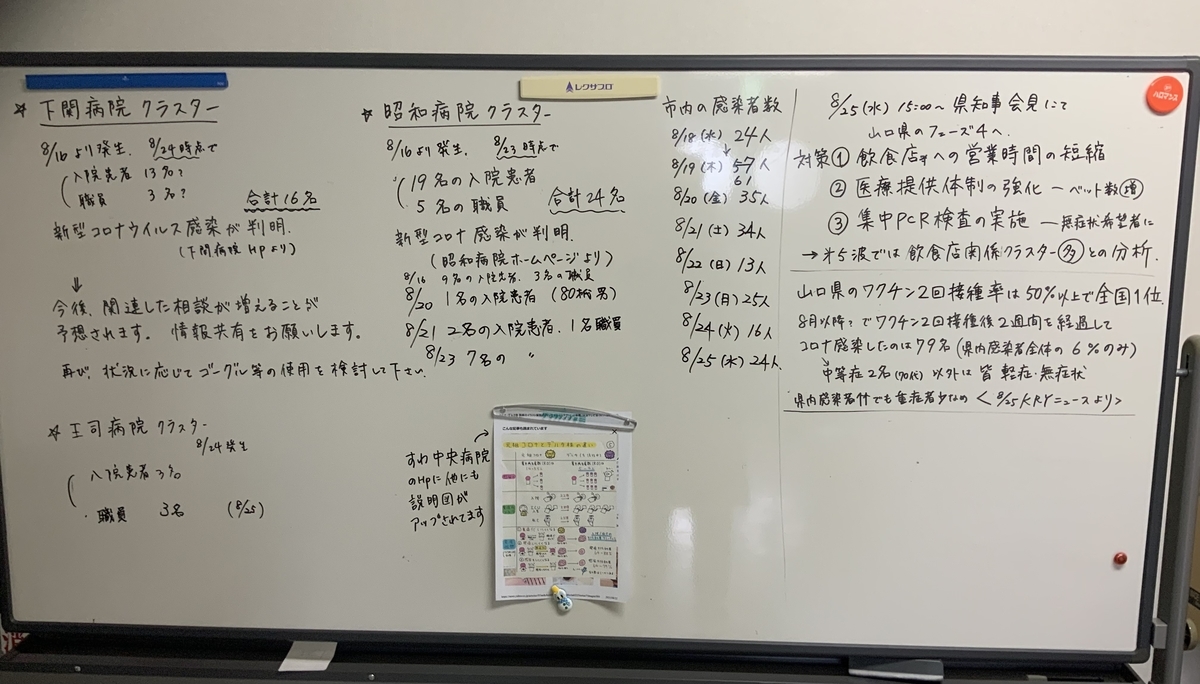 レクサプロ
ハロマンス
☆ 下関病院 クラスター
8/16より発生. 8/24時点で
入院患者 13名?
職員 3名?
合計16名
新型コロナウイルス感染が判明.
(下関病院 HPより)
⇓
今後、関連した相談が増えることが
予想されます。 情報共有をお願いします。
再び、状況に応じてゴーグル等の使用を検討して下さい.
☆ 王司病院 クラスター
8/24発生
入院患者 3名
職員 3名 (8/25)
☆ 昭和病院 クラスター
8/16より発生. 8/23時点で
19名の入院患者
5名の職員 合計24名
新型コロナ感染が判明.
(昭和病院ホームページより)
8/16 9名の入院患者. 3名の職員
8/20 1名の入院患者 (80代男)
8/21 2名の入院患者. 1名職員
8/23 7名の 〃
すわ中央病院
のHpに他にも
説明図が
アップされてます
こんな記事も読まれています
市内の感染者数
8/18 (水) 24人
↓
8/19 (木) 57人
61
8/20 (金) 35人
8/21 (土) 34人
8/22 (日) 13人
8/23 (月) 25人
8/24 (火) 16人
8/25 (水) 24人
8/25(水) 15:00〜 県知事会見にて
山口県のフェーズ4へ.
対策① 飲食店等への営業時間の短縮
② 医療提供体制の強化 ー ベット数増
③ 集中PCR検査の実施 ー 無症状希望者に
→ 第5波では 飲食店関係クラスター多 との分析.
山口県のワクチン2回接種率は50%以上で全国1位.
8月以降?でワクチン2回接種後2週間を経過して
コロナ感染したのは79名 (県内感染者全体の6%のみ)
↓
中等症2名(70代) 以外は皆 軽症・無症状
県内感染者付でも重症者少なめ <8/25 KRYニュースより>